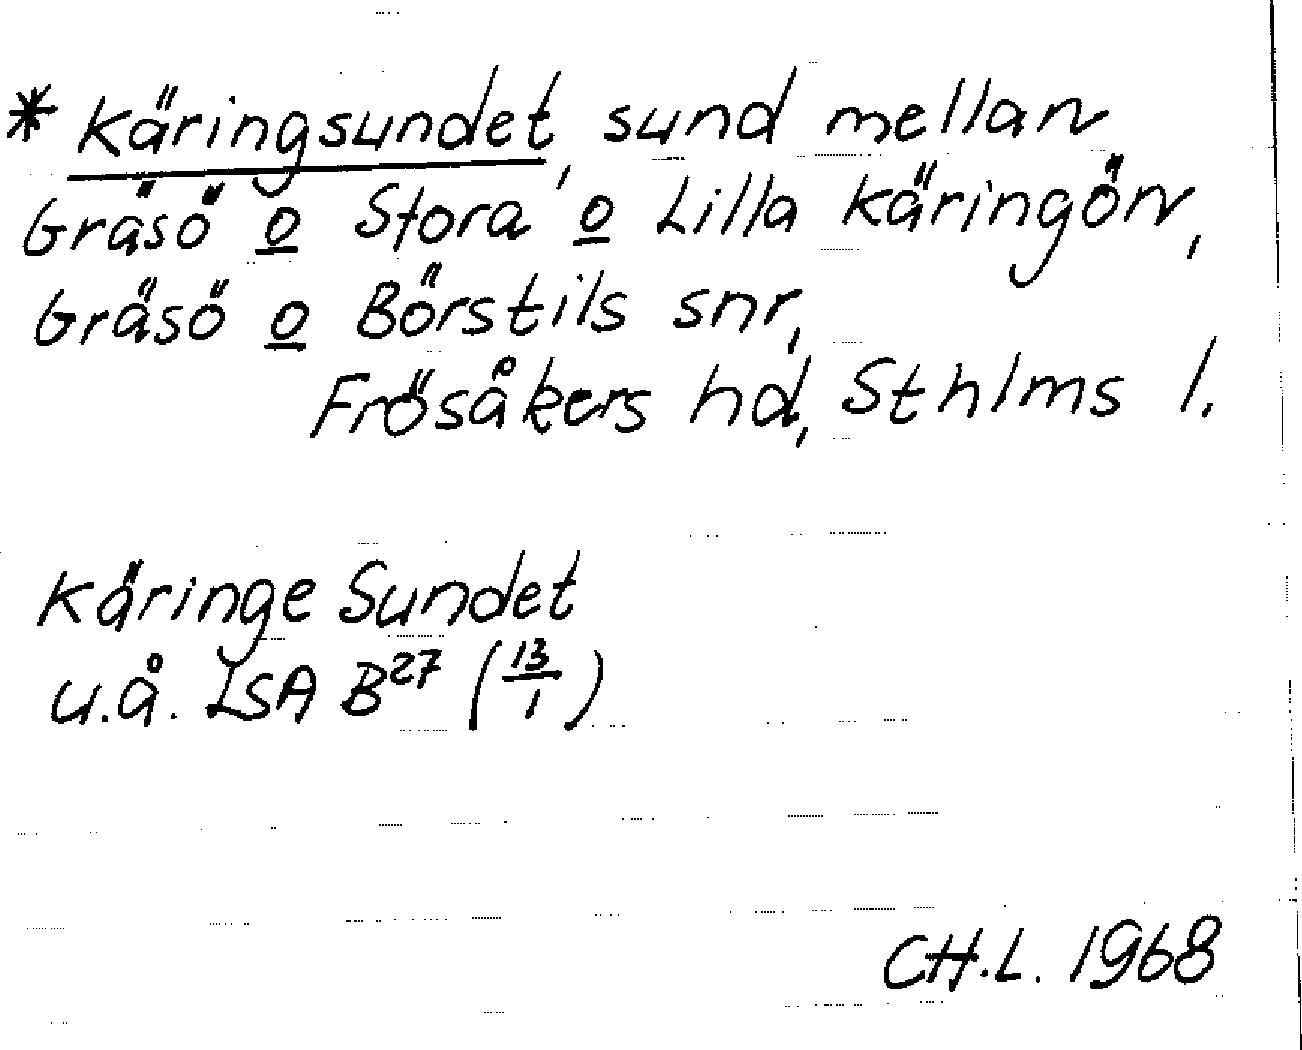 * Käringsundet, sund mellan
Gräsö o Stora o Lilla Käringön,
Gräsö o Börstils snr,
Frösåkers hd, Sthlms l.
Käringe Sundet
u.å. LSA B27 (13/1)
CH.L. 1968